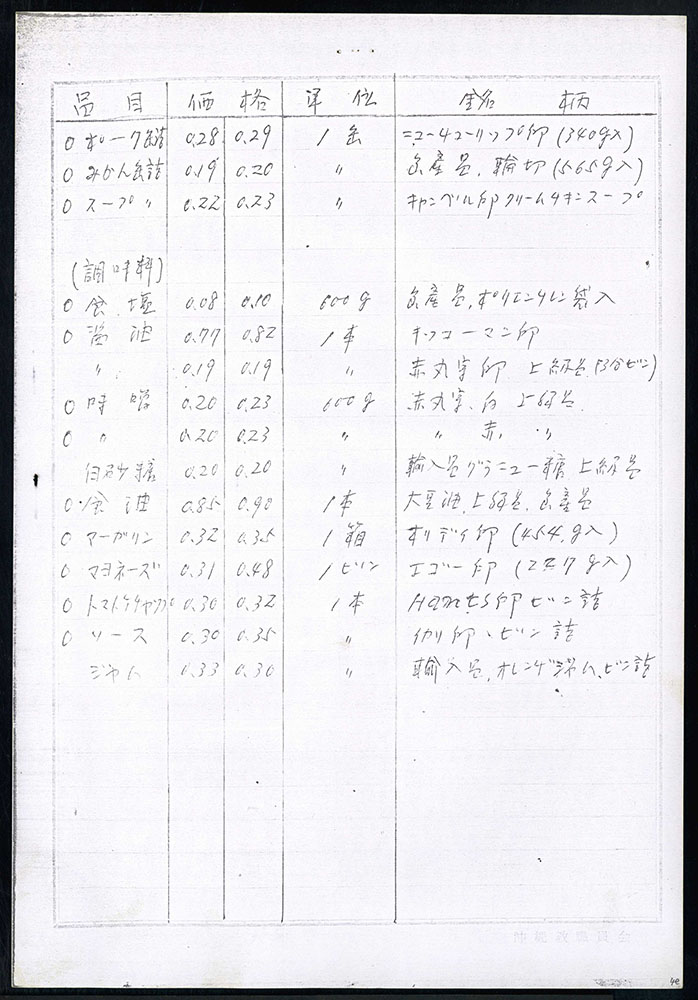 品目 価格 単位 銘柄
○ ポーク缶詰 0.28 0.29 1缶 ニューチューリップ印(340g入)
○ みかん缶詰 0.19 0.20 〃 島産品、輪切(565g入)
○ スープ〃 0.22 0.23 〃 キャンベル印クリームチキンスープ
(調味料)
○ 食塩 0.08 0.10 600g 島産品、ポリエチレン袋入
○ 醤油 0.77 0.82 1本 キッコーマン印
〃 0.19 0.19 〃 赤丸宇印 上級品
○ 味噌 0.20 0.23 600g 赤丸宇、白 上級品
○ 〃 0.20 0.23 〃 〃 赤 〃
白砂糖 0.20 0.20 〃 輸入品グラニュー糖 上級品
○ 食油 0.85 0.90 1本 大豆油、上級品、島産品
○ マーガリン 0.32 0.35 1箱 ホリデイ印(454g入)
○ マヨネーズ 0.31 0.48 1ビン エゴー印(227g入)
○ トマトケチャップ 0.30 0.32 1本 印ビン詰
○ ソース 0.30 0.35 〃 イカリ印、ビン詰
ジャム 0.33 0.30 〃 輸入品、オレンヂジャム、ビン詰
沖縄教職員会